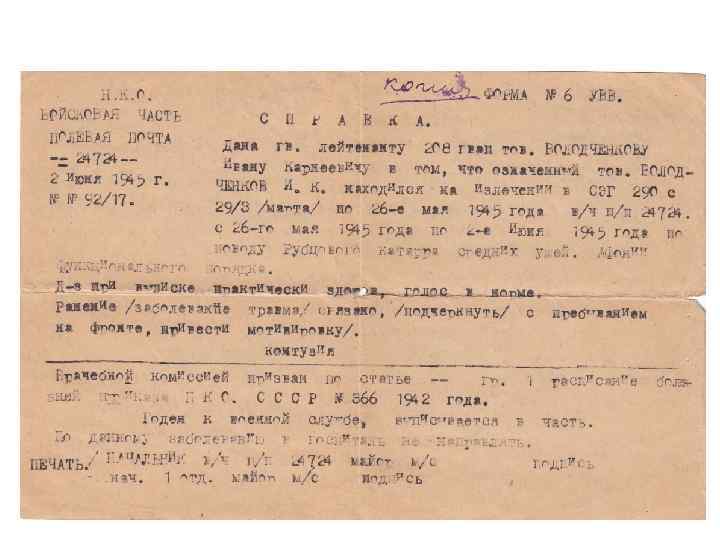 Н.К.О.
копия
ФОРМА № 6 УВВ.
ВОЙСКОВАЯ ЧАСТЬ
ПОЛЕВАЯ ПОЧТА
-- 24724 --
2 Июня 1945 г.
№ № 92/17.
С П Р А В К А.
Дана гв. лейтенанту 208 гвап тов. ВОЛОДЧЕНКОВУ
Ивану Карнеевичу в том, что означенный тов. ВОЛОД-
ЧЕНКОВ И. К. находился на излечении в СЭГ 290 с
29/3 /марта/ по 26-е мая 1945 года в/ч п/п 24724.
с 26-го мая 1945 года по 2-е Июня 1945 года по
поводу Рубцового катарра средних ушей. Афонии
функционального порядка.
Д-з при выписке практически здоров, голос в норме.
Ранение /заболевание травма/ связано, /подчеркнуть/ с пребыванием
на фронте, привести мотивировку/.
контузия
Врачебной комиссией призван по статье -- гр. 1 расписание болез-
ней приказа НКО. СССР № 366 1942 года.
Годен к военной службе, выписывается в часть.
По данному заболеванию в госпиталь не направлять.
ПЕЧАТЬ./ НАЧАЛЬНИК в/ч п/п 24724 майор м/с подпись
нач. 1 отд. майор м/с подпись